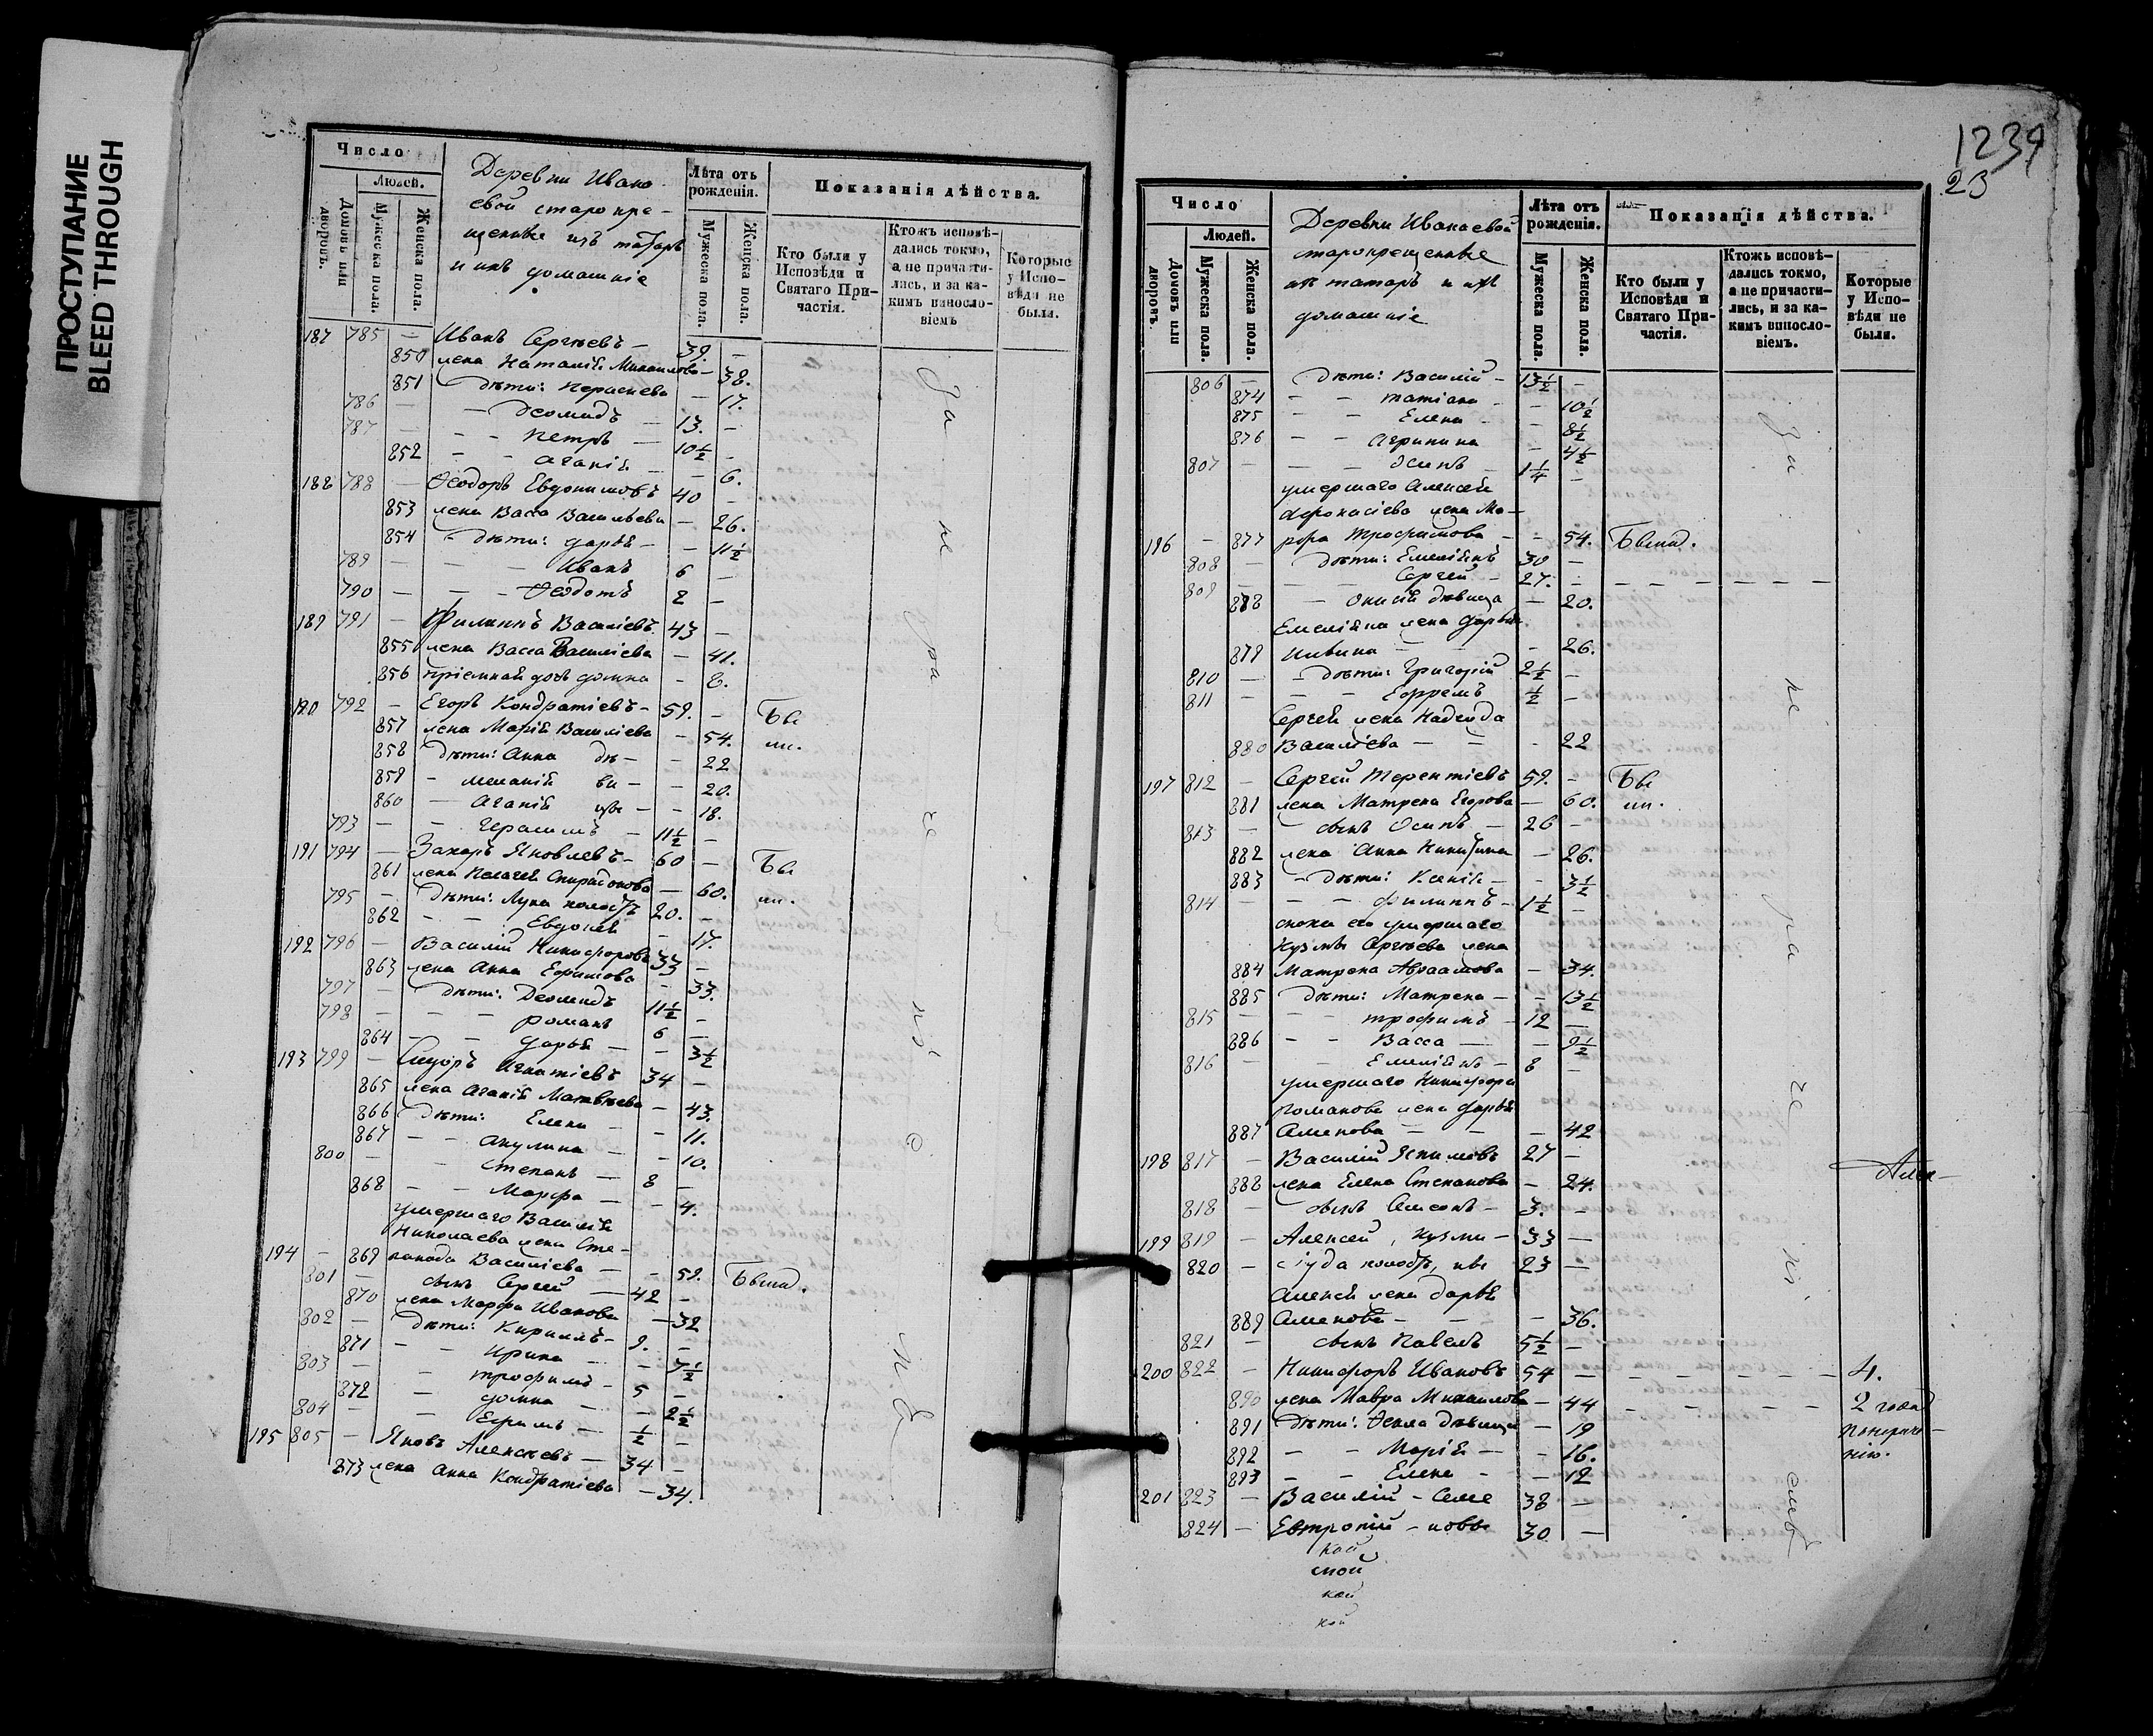 ПРОСТУПАНИЕ
BLEED THROUGH
Число
Людей.
Домовъ или дворовъ.
Мужеска пола.
Женска пола.
Деревни Ивана-
евой старокре-
щенные изъ татаръ
и ихъ домашніе
Лѣта отъ рожденія.
Мужеска пола.
Женска пола.
Показанія дѣйства.
Кто были у Исповѣди и Святаго Причастія.
Ктожъ исповѣдались токмо, а не причастились, и за какимъ винословіемъ
Которые у Исповѣди не были.
187 785 — Иванъ Сергѣевъ — 39. —
850 жена Наталія Михаилова — 38.
851 дѣти: Параскева — 17.
786 — — Деомидъ — 13. —
787 — — Петръ — 10½ —
852 — — Агаѳія — — 6.
188 788 — Ѳеодоръ Евдокимовъ 40 —
853 жена Васса Васильева — 26.
854 — дѣти: Дарья — — 11½
789 — — — Иванъ 6 —
790 — — — Ѳедотъ 2 —
189 791 — Филиппъ Василіевъ 43 —
855 жена Васса Василіева — 41.
856 пріемная дочь Домна — 8.
190 792 — Егоръ Кондратіевъ — 59. — Бы
857 жена Марія Василіева — 54. ли.
858 дѣти: Анна дѣ- — 22
859 — Меланія ви- — 20.
860 — Агаѳія цы — — 18.
793 — — Герасимъ — 11½ —
191 794 — Захаръ Яковлевъ — 60 — Бы
861 жена Пелагея Спиридонова — 60. ли.
795 — дѣти: Лука холостъ 20. —
862 — — Евдокія — 17.
192 796 — Василій Никифоровъ 33 —
863 жена Анна Ефимова — 33.
797 — дѣти: Деомидъ 11½ —
798 — — — Романъ 6 —
864 — — Дарья — — 3½
193 799 — Сидоръ Игнатіевъ 34 —
865 жена Агаѳія Матвѣева — 43.
866 дѣти: Елена — — 11.
867 — — Акулина — — 10.
800 — — Степанъ — 8 —
868 — — Марфа — — 4.
умершаго Василія
Николаева жена Сте-
194 — 869 панида Василіева — — 59. Была.
801 — сынъ Сергей — 42 —
870 жена Марфа Иванова — 32
802 — дѣти: Кириллъ — 9. —
871 — — Ирина — — 7½
803 — — Трофимъ — 5 —
872 — Домна — — 2½
804 — — Ефимъ — ½ —
195 805 — Яковъ Алексѣевъ — 34 —
873 жена Анна Кондратіева — 34.
За не ра че ні е мъ
1239
23
Число
Людей.
Домовъ или дворовъ.
Мужеска пола.
Женска пола.
Деревни Иванаевой
старокрещенные
изъ татаръ и ихъ
домашніе
Лѣта отъ рожденія.
Мужеска пола.
Женска пола.
Показанія дѣйства.
Кто были у Исповѣди и Святаго Причастія.
Ктожъ исповѣдались токмо, а не причастились, и за какимъ винословіемъ.
Которые у Исповѣди не были.
806 — дѣти: Василій — 13½ —
874 — — Татіана — — 10½
875 — — Елена — — 8½
876 — — Агрипина — 4½
807 — — — Осипъ — 1¼ —
умершаго Алексея
Афонасіева жена Ма-
196 — 877 рфа Трофимова — — 54. Была.
808 — дѣти: Емеліянъ 30 —
809 — — Сергей — 27. — — — — — — —
878 — Анисія дѣвица — 20.
Емеліяна жена Дарья
879 Ильина — — — 26.
810 — — дѣти: Григорій 2½ —
811 — — — Ефремъ ½ —
Сергея жена Надежда
880 Василіева — — — 22
197 812 — Сергей Терентіевъ 59. — Бы
881 жена Матрена Егорова — 60. ли.
813 — — сынъ Осипъ — 26 —
882 жена Анна Никитина — 26.
883 — дѣти: Ксенія — — 3½
814 — — — Филиппъ — 1½ —
сноха его умершаго
Кузмы Сергѣева жена
884 Матрена Авраамова — 34.
885 дѣти: Матрена — — 13½
815 — — — Трофимъ — 12 —
886 — — Васса — — 9½
816 — — Емеліянъ — 8 —
умершаго Никифора
Романова жена Дарья
887 Аменова — — — 42
198 817 — Василій Якимовъ 27 —
888 жена Елена Степанова — 24.
818 — сынъ Семенъ — 3. —
199 819 — Алексей, Кузми- 33 —
820 — Іуда холостъ, ны 23 —
Алексея жена Дарья
889 Аменова — — — 36.
821 — сынъ Павелъ 5½ —
200 822 — Никифоръ Ивановъ 54 — — — — — — — 4.
890 жена Мавра Михаилова — 44 — — — — — 2 года
891 дѣти: Ѳекла дѣвица — 19 понераче-
892 — — Марія — — 16. нію.
893 — — Елена — — 12
201 823 — Василій — Семе 38 —
824 — Евтропій — новы 30 —
За не ра че ні емъ
Алек-
кой
ской
кой
кой